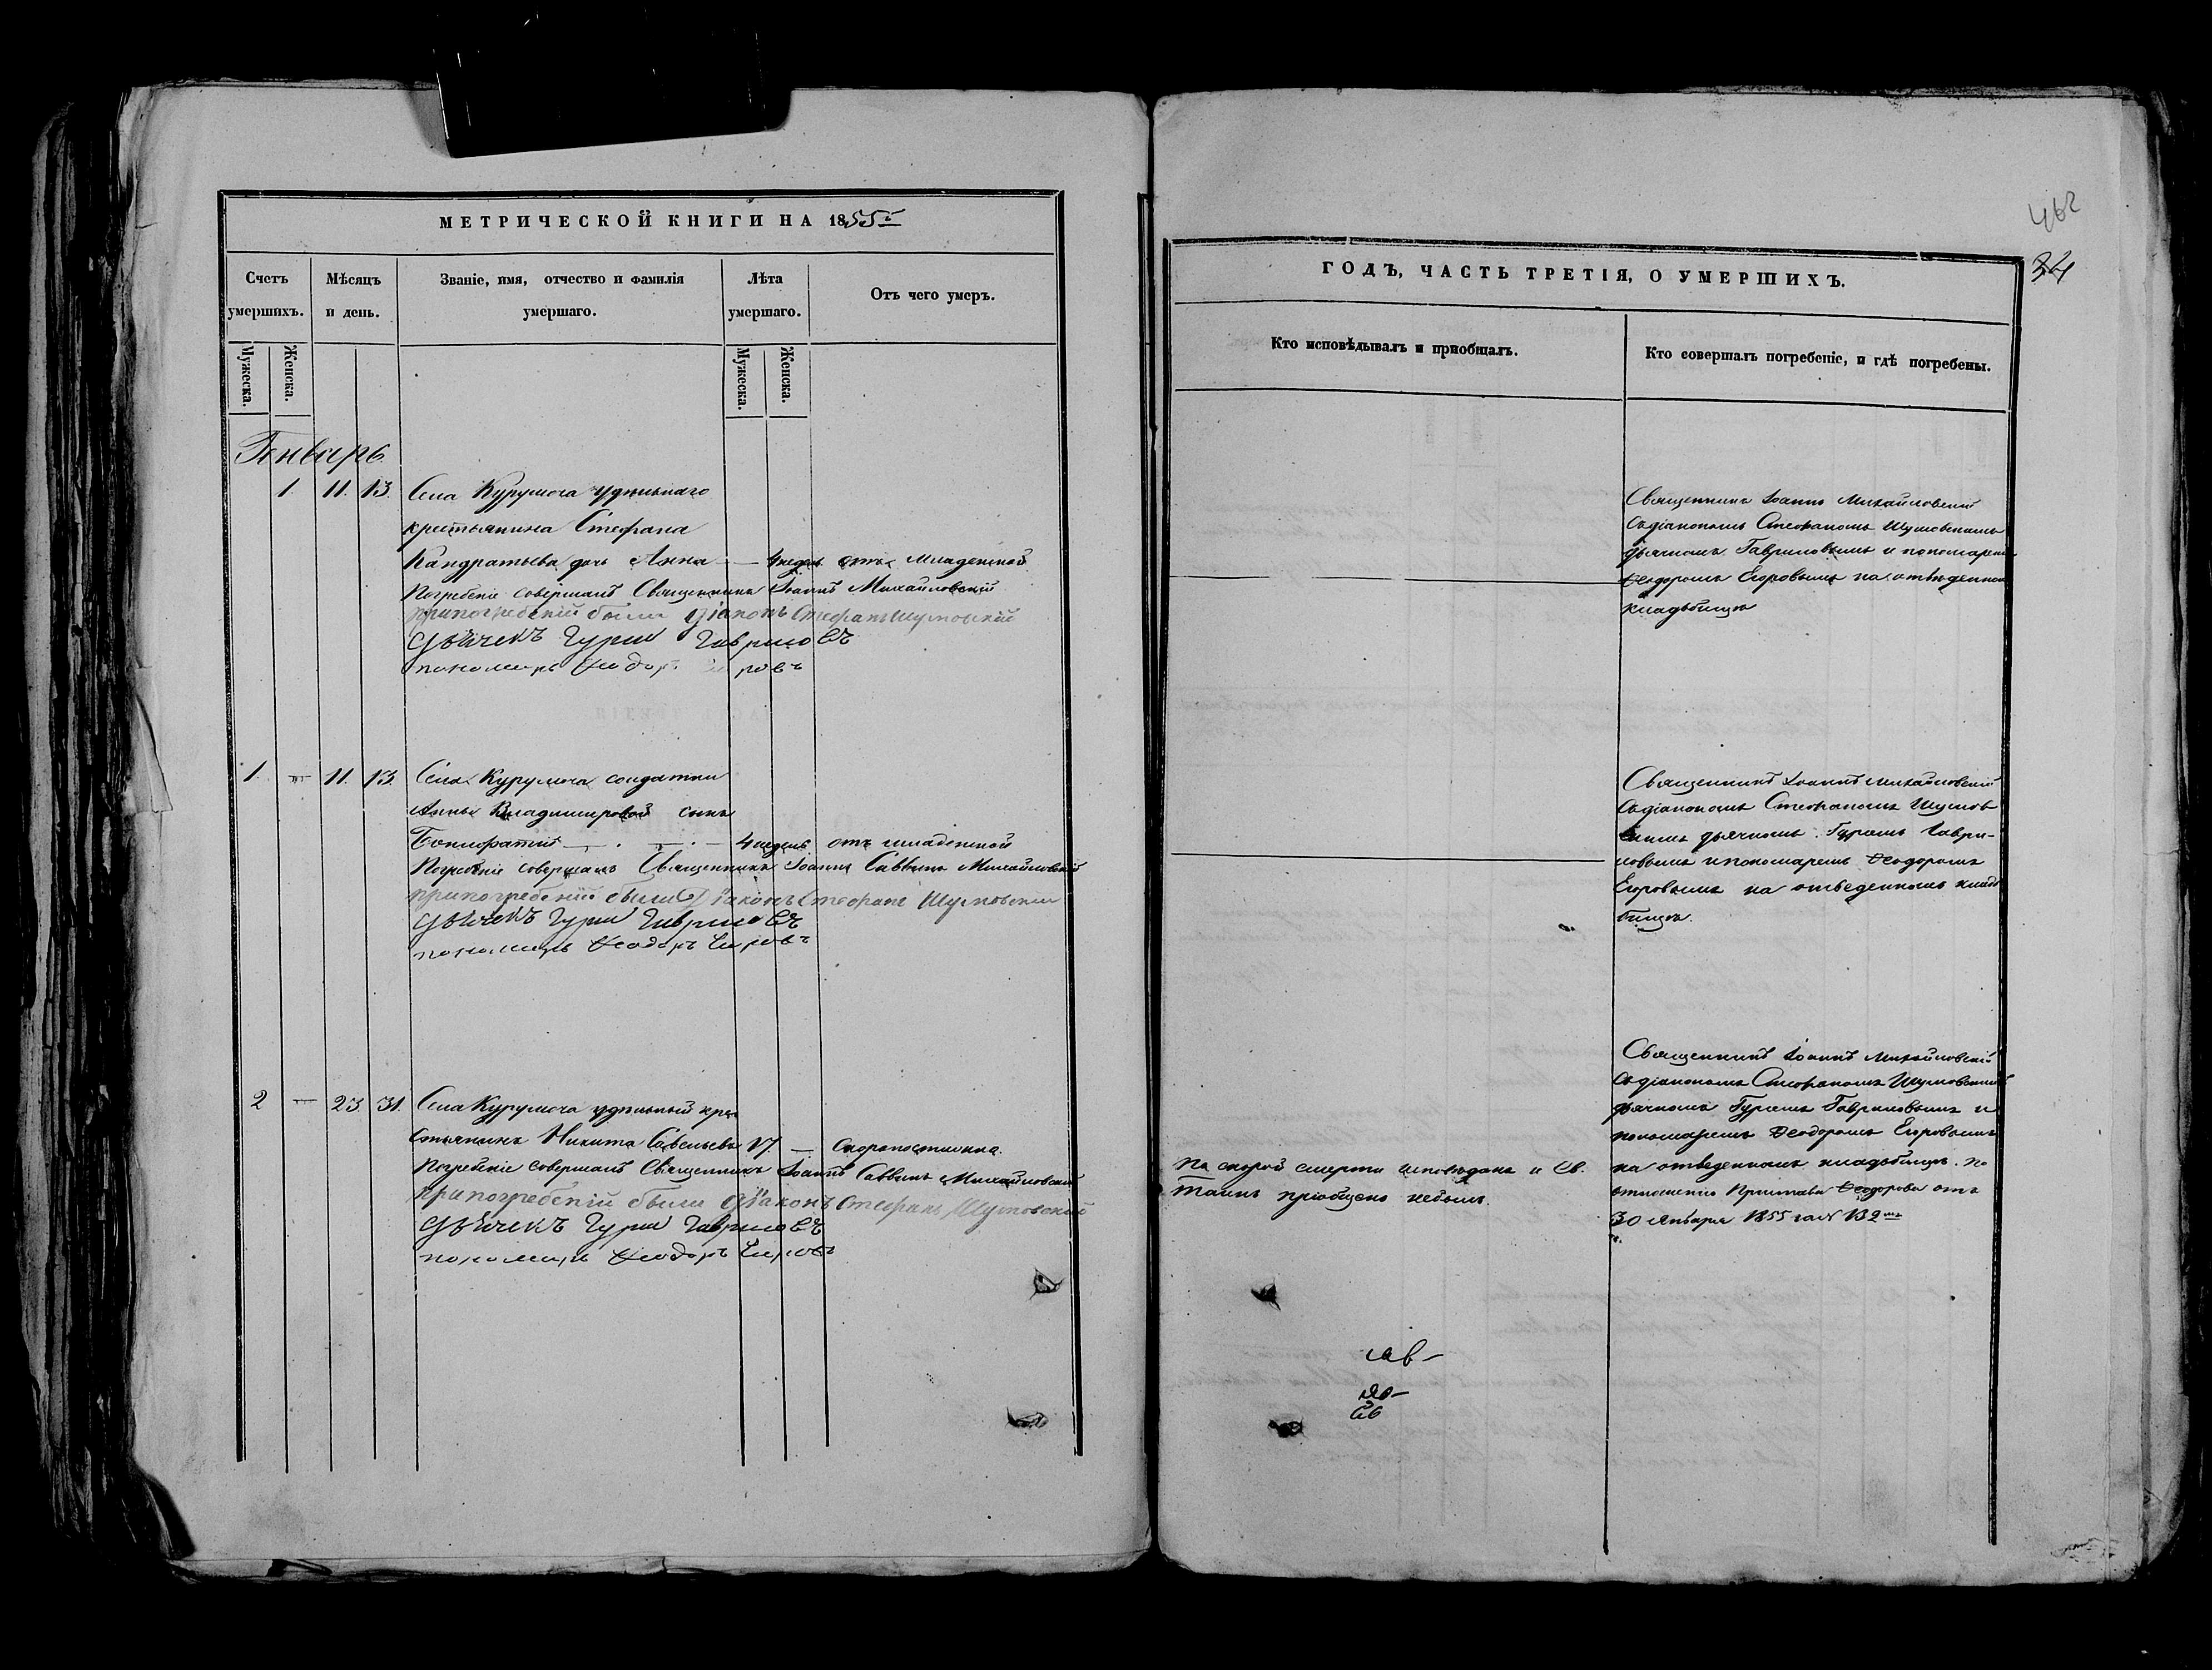 МЕТРИЧЕСКОЙ КНИГИ НА 1855й
Счетъ умершихъ.
Мѣсяцъ и день.
Званіе, имя, отчество и фамилія умершаго.
Лѣта умершаго.
Отъ чего умеръ.
Мужеска.
Женска.
Мужеска.
Женска.
Генварь
1. 11. 13. Села Курумоча удѣльнаго
крестьянина Стефана
Кандратьева дочь Анна — 4 недѣль отъ младенской
Погребеніе совершалъ Священникъ Іоаннъ Михайловскій
при погребеніи были Діаконъ Стефанъ Шумовскій
Дьячекъ Гурій Гавриловъ
пономарь Ѳеодоръ Егоровъ
1. — 11. 13. Села Курумоча солдатки
Анны Владимировой сынъ
Бонифатій — 4 недѣль отъ младенской
Погребеніе совершалъ Священникъ Іоаннъ Саввинъ Михайловскій
при погребеніи были Діаконъ Стефанъ Шумовскій
Дьячекъ Гурій Гавриловъ
пономарь Ѳеодоръ Егоровъ
2 — 23. 31. Села Курумоча удѣльный кре
стьянинъ Никита Савельевъ 17. — Скоропостижно.
Погребеніе совершалъ Священникъ Іоаннъ Саввинъ Михайловскій
при погребеніи были Діаконъ Стефанъ Шумовскій
Дьячекъ Гурій Гавриловъ
пономарь Ѳеодоръ Егоровъ
462
34
ГОДЪ, ЧАСТЬ ТРЕТІЯ, О УМЕРШИХЪ.
Кто исповѣдывалъ и приобщалъ.
Кто совершалъ погребеніе, и гдѣ погребены.
Священникъ Іоаннъ Михайловскій
съ діакономъ Стефаномъ Шумовскимъ
дьячкомъ Гавриловымъ и пономаремъ
Ѳеодоромъ Егоровымъ на отведенномъ
кладбищѣ
Священникъ Іоаннъ Михайловскій
съ діакономъ Стефаномъ Шумов
скимъ дьячкомъ Гуріемъ Гаври-
ловымъ и пономаремъ Ѳеодоромъ
Егоровымъ на отведенномъ клад
бищѣ.
По скорой смерти исповѣданъ и Св.
Таинъ пріобщенъ небылъ.
Священникъ Іоаннъ Михайловскій
съ діакономъ Стефаномъ Шумовскимъ
дьячкомъ Гуріемъ Гавриловымъ и
пономаремъ Ѳеодоромъ Егоровымъ
на отведенномъ кладбищѣ. По
отношенію Пристава Ѳедорова отъ
30 января 1855 за № 132мъ